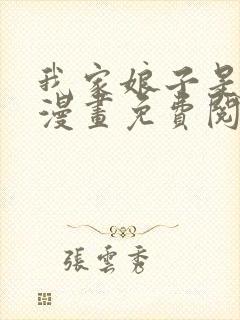 我家娘子是
漫畫免費閱
張雲秀